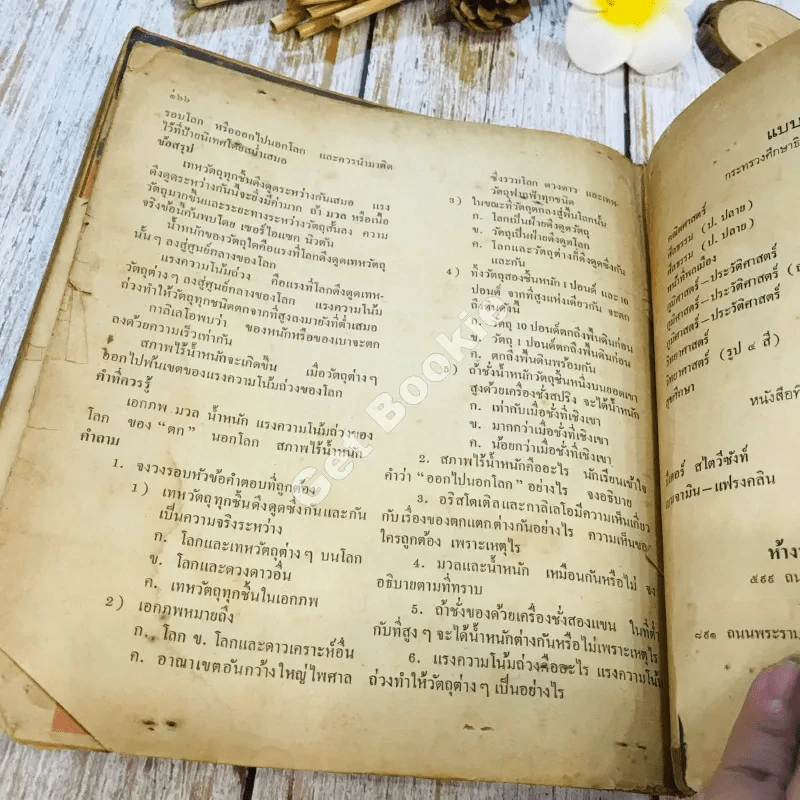 ๑๖๖
รอบโลก หรือออกไปนอกโลก และควรนำมาติด
ไว้ที่ป้ายนิเทศโดยสม่ำเสมอ
ข้อสรุป
เทหวัตถุทุกชิ้นดึงดูดระหว่างกันเสมอ แรง
ดึงดูดระหว่างกันนี้จะยิ่งมีค่ามาก ถ้า มวล หรือเนื้อ
วัตถุมากขึ้นและระยะทางระหว่างวัตถุสั้นลง ความ
จริงข้อนี้ค้นพบโดย เซอร์ไอแซก นิวตัน
น้ำหนักของวัตถุใดคือแรงที่โลกดึงดูดเทหวัตถุ
นั้น ๆ ลงสู่ศูนย์กลางของโลก
แรงความโน้มถ่วง คือแรงที่โลกดึงดูดเทห-
วัตถุต่าง ๆ ลงสู่ศูนย์กลางของโลก แรงความโน้ม
ถ่วงทำให้วัตถุทุกชนิดตกจากที่สูงลงมายังที่ต่ำเสมอ
กาลิเลโอพบว่า ของหนักหรือของเบาจะตก
ลงด้วยความเร็วเท่ากัน
สภาพไร้น้ำหนักจะเกิดขึ้น เมื่อวัตถุต่าง ๆ
ออกไปพ้นเขตของแรงความโน้มถ่วงของโลก
คำที่ควรรู้
เอกภพ มวล น้ำหนัก แรงความโน้มถ่วงของ
โลก ของ “ตก” นอกโลก สภาพไร้น้ำหนัก
คำถาม
1. จงวงรอบหัวข้อคำตอบที่ถูกต้อง
1) เทหวัตถุทุกชิ้นดึงดูดซึ่งกันและกัน
เป็นความจริงระหว่าง
ก. โลกและเทหวัตถุต่าง ๆ บนโลก
ข. โลกและดวงดาวอื่น
ค. เทหวัตถุทุกชิ้นในเอกภพ
2) เอกภพหมายถึง
ก. โลก ข. โลกและดาวเคราะห์อื่น
ค. อาณาเขตอันกว้างใหญ่ไพศาล
ซึ่งรวมโลก ดวงดาว และเทห-
วัตถุฟากฟ้าทุกชนิด
3) ในขณะที่วัตถุตกลงสู่พื้นโลกนั้น
ก. โลกเป็นฝ่ายดึงดูดวัตถุ
ข. วัตถุเป็นฝ่ายดึงดูดโลก
ค. โลกและวัตถุต่างก็ดึงดูดซึ่งกัน
และกัน
4) ทิ้งวัตถุสองชิ้นหนัก 1 ปอนด์ และ 10
ปอนด์ จากที่สูงแห่งเดียวกัน จะตก
ถึงดินดังนี้
ก. วัตถุ 10 ปอนด์ตกถึงพื้นดินก่อน
ข. วัตถุ 1 ปอนด์ตกถึงพื้นดินก่อน
ค. ตกถึงพื้นดินพร้อมกัน
5) ถ้าชั่งน้ำหนักวัตถุชิ้นหนึ่งบนยอดเขา
สูงด้วยเครื่องชั่งสปริง จะได้น้ำหนัก
ก. เท่ากับเมื่อชั่งที่เชิงเขา
ข. มากกว่าเมื่อชั่งที่เชิงเขา
ค. น้อยกว่าเมื่อชั่งที่เชิงเขา
2. สภาพไร้น้ำหนักคืออะไร นักเรียนเข้าใจ
คำว่า “ออกไปนอกโลก” อย่างไร จงอธิบาย
3. อริสโตเติลและกาลิเลโอมีความเห็นเกี่ยว
กับเรื่องของตกแตกต่างกันอย่างไร ความเห็นของ
ใครถูกต้อง เพราะเหตุไร
4. มวลและน้ำหนัก เหมือนกันหรือไม่ จง
อธิบายตามที่ทราบ
5. ถ้าชั่งของด้วยเครื่องชั่งสองแขน ในที่ต่ำ
กับที่สูง ๆ จะได้น้ำหนักต่างกันหรือไม่เพราะเหตุไร
6. แรงความโน้มถ่วงคืออะไร แรงความโน้ม
ถ่วงทำให้วัตถุต่าง ๆ เป็นอย่างไร
แบบ
กระทรวงศึกษาธิ
คณิตศาสตร์
ศีลธรรม (ป. ปลาย)
ศีลธรรม (ป. ปลาย)
หน้าที่พลเมือง
ภูมิศาสตร์–ประวัติศาสตร์
ภูมิศาสตร์–ประวัติศาสตร์
ภูมิศาสตร์–ประวัติศาสตร์
วิทยาศาสตร์
วิทยาศาสตร์ (รูป ๔ สี)
สุขศึกษา
หนังสือที
สไตวีซังท์
เบญจามิน–แฟรงคลิน
ห้าง
๕๙๙ ถน
๘๙๑ ถนนพระราม
Get Bookie